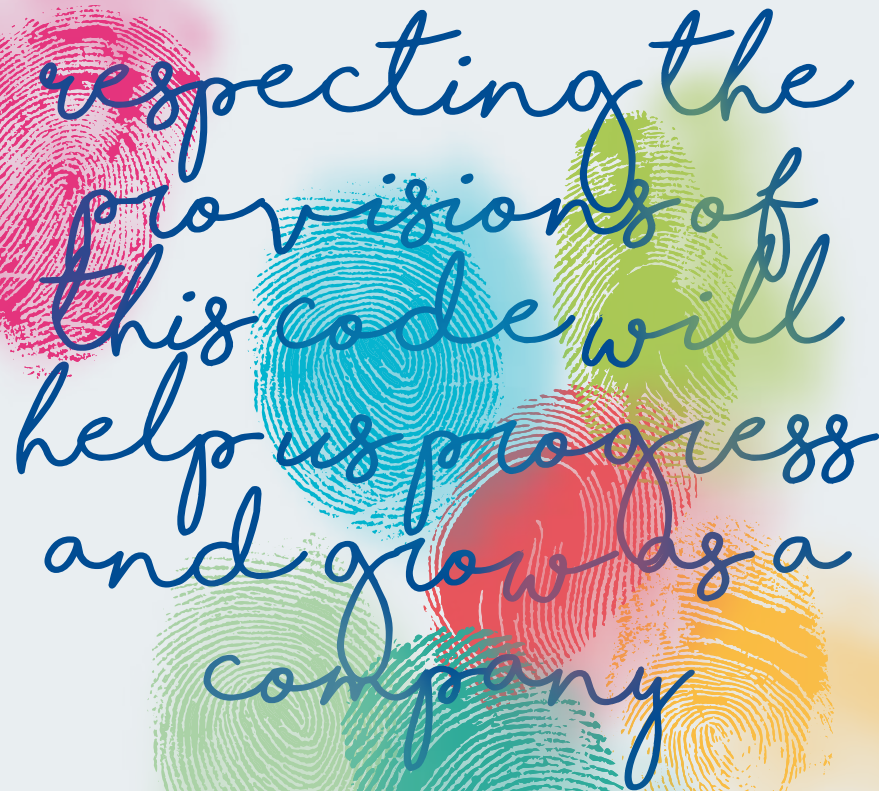 respecting the
provisions of
this code will
help us progress
and grow as a
company